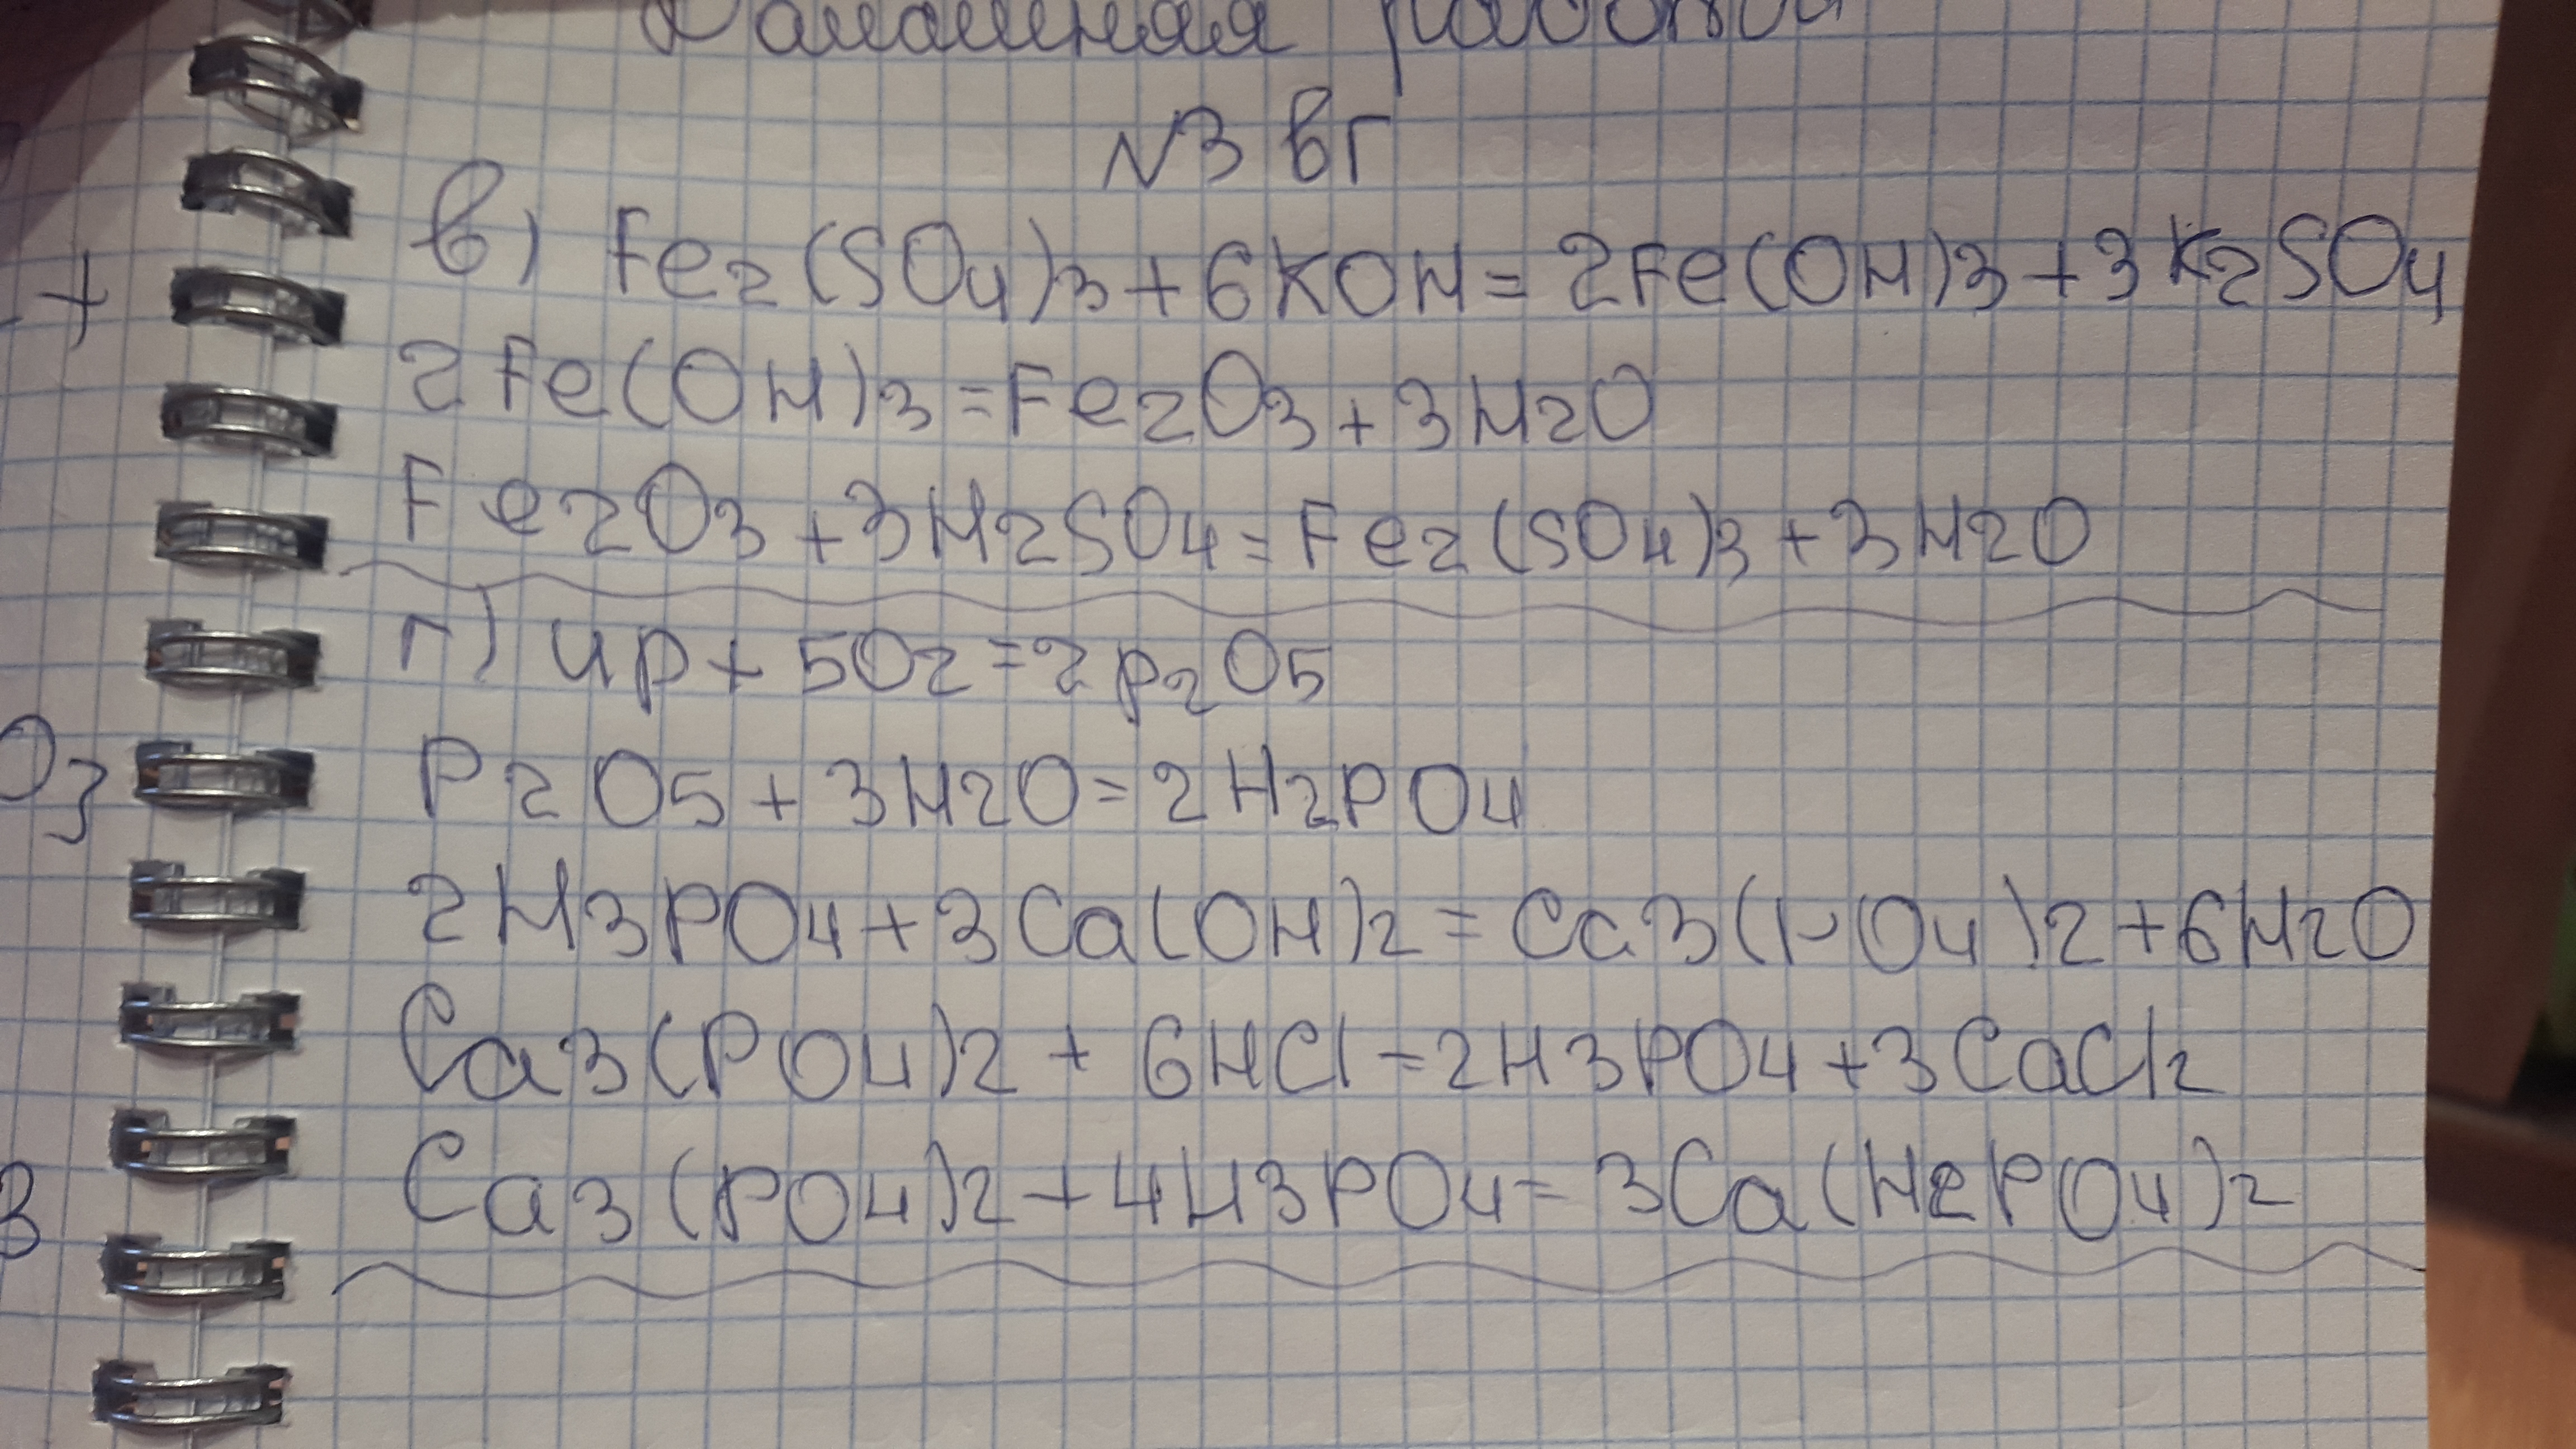 Домашняя работа
N3 вг
в) Fe2(SO4)3+6KOH=2Fe(OH)3+3K2SO4
+
2Fe(OH)3=Fe2O3+3H2O
Fe2O3+3H2SO4=Fe2(SO4)3+3H2O
г) 4p+5O2=2p2O5
O3
P2O5+3H2O=2H2PO4
2H3PO4+3Ca(OH)2=Ca3(PO4)2+6H2O
Ca3(PO4)2+6HCl=2H3PO4+3CaCl2
Ca3(PO4)2+4H3PO4=3Ca(H2PO4)2
3